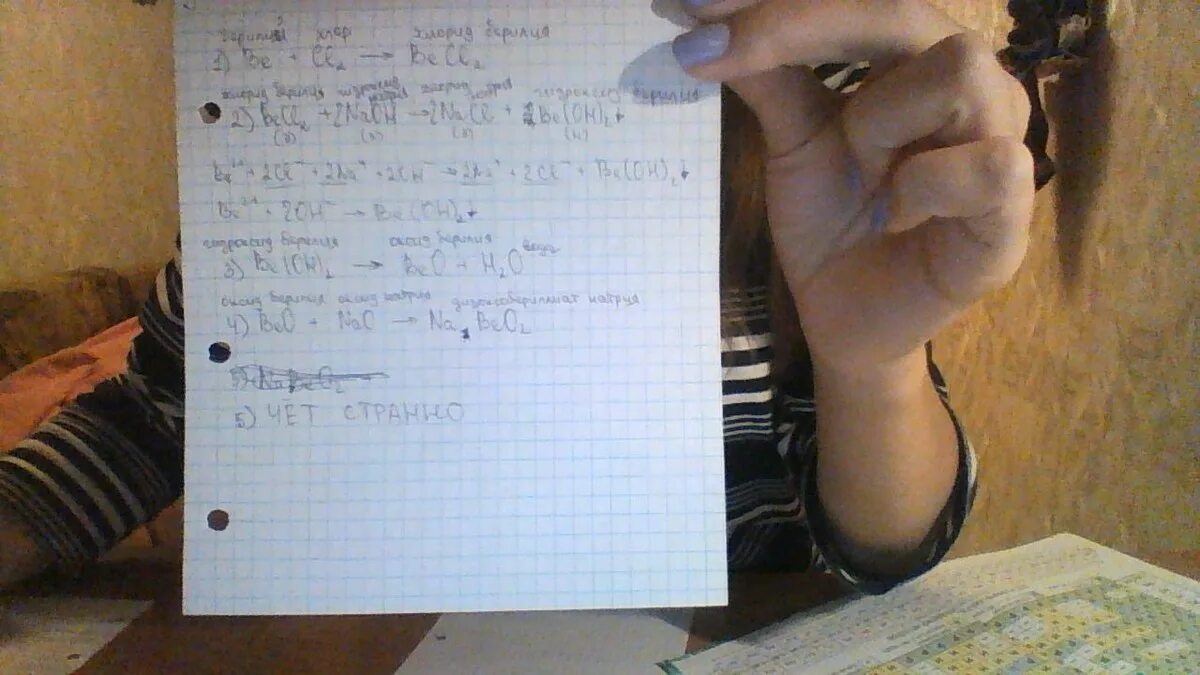 бериллий хлор хлорид берилия
1) Be + Cl₂ → BeCl₂
хлорид берилия гидроксид натрия хлорид натрия гидроксид берилия
2) BeCl₂ + 2NaOH → 2NaCl + Be(OH)₂↓
(р) (р) (р) (н)
Be²⁺ + 2Cl⁻ + 2Na⁺ + 2OH⁻ → 2Na⁺ + 2Cl⁻ + Be(OH)₂↓
Be²⁺ + 2OH⁻ → Be(OH)₂↓
гидроксид берилия оксид берилия вода
3) Be(OH)₂ → BeO + H₂O
оксид берилия оксид натрия диоксобериллиат натрия
4) BeO + NaO → Na₂BeO₂
5) ЧЁТ СТРАННО